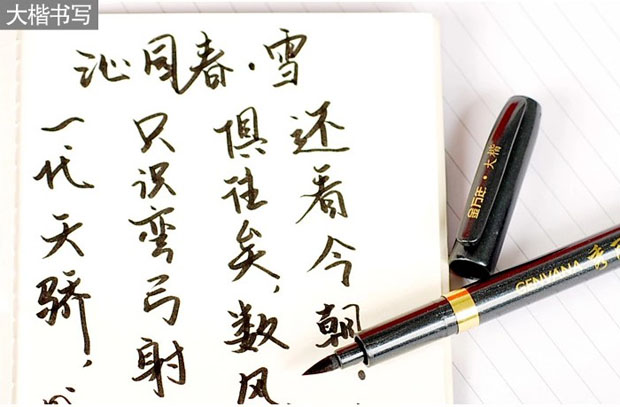 大楷书写
沁园春·雪
一代天骄,
只识弯弓射
俱往矣,数风
还看今朝.
金万年·大楷
GENVANA